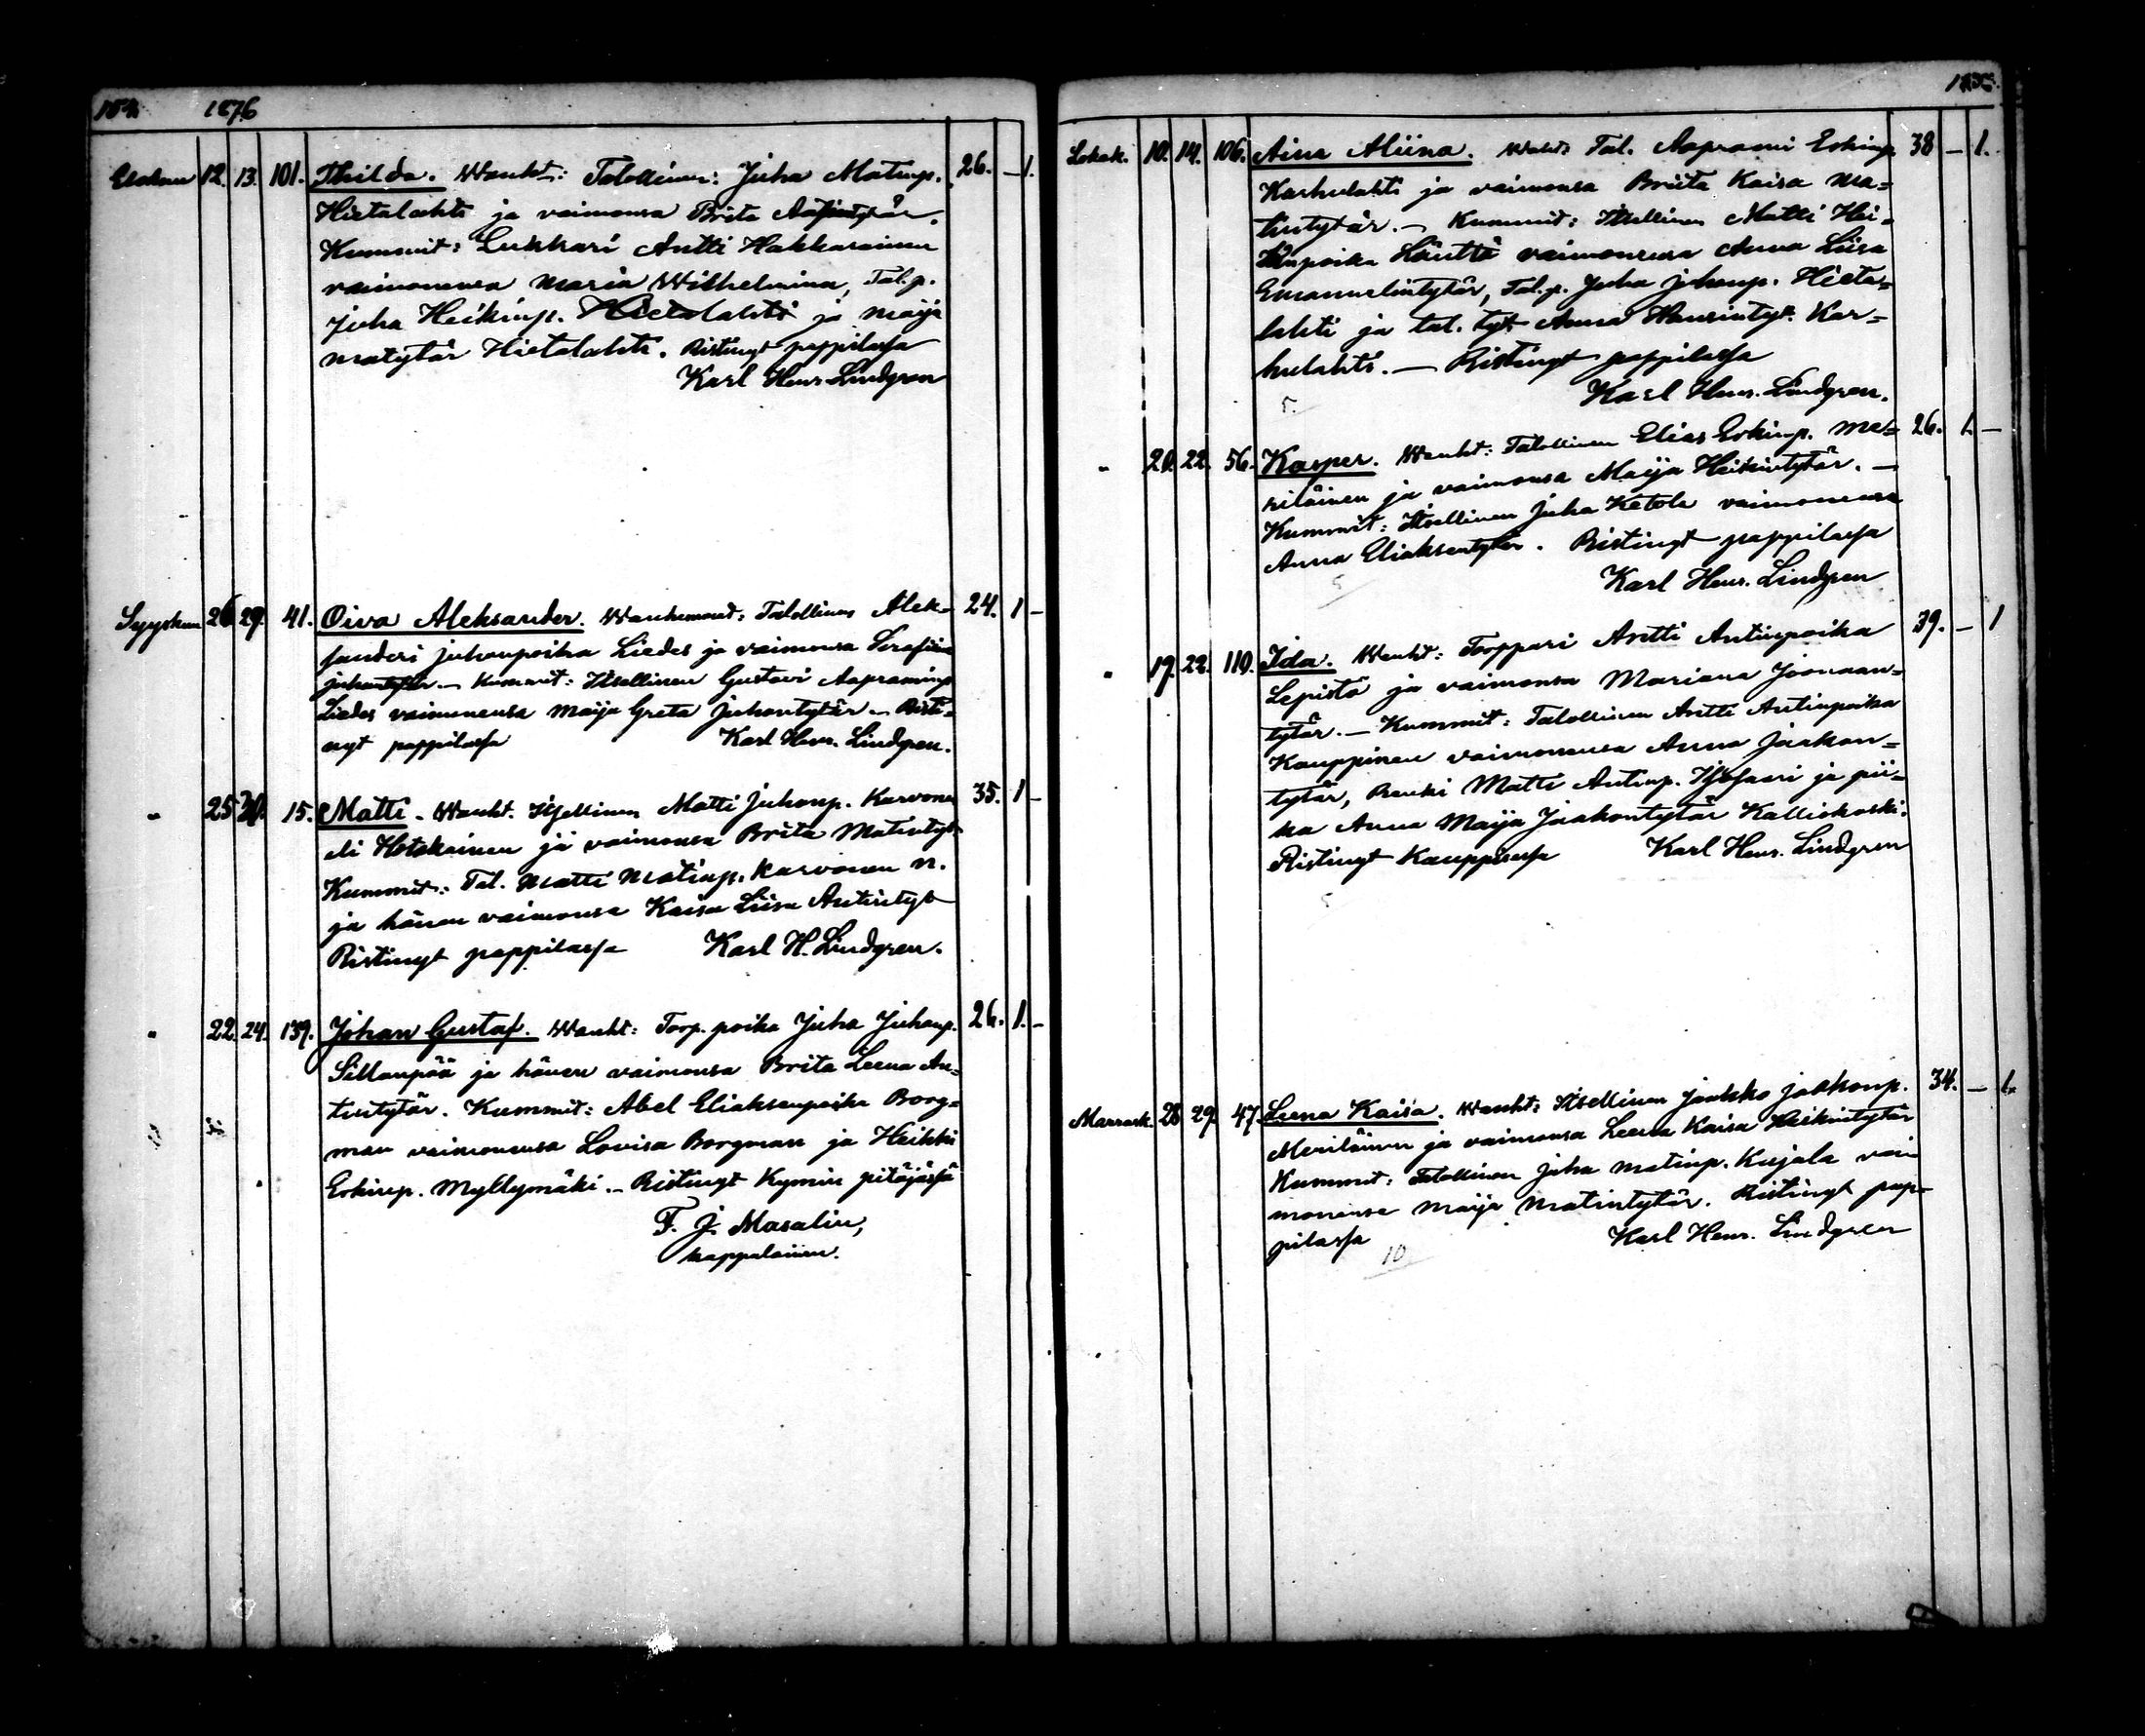 154 1876
Elokuu 12. 13. 101. Thilda. Wanht: Talollinen: Juha Matinp. 26. — 1.
Hietalahti ja vaimonsa Brita Aapintytär.
Kummit: Lukkari Antti Hakkarainen
vaimonensa Maria Wilhelmina, Tal.p.
Juha Heikinp. Hietalahti ja Maija
Matytär Hietalahti. Ristinyt pappilassa
Karl Henr. Lindgren
Syyskuu 26 29. 41. Oiva Aleksander. Wanhemmat: Talollinen Alek- 24. 1 —
sanderi Juhonpoika Liedes ja vaimonsa Serafiina
Juhontytär. — Kummit: Itsellinen Gustavi Aapraminp.
Liedes vaimonensa Maija Greta Juhontytär. — Risti-
nyt pappilassa Karl Henr. Lindgren.
" 25 15. Matti. Wanht. Itsellinen Matti Juhonp. Karvonen 35. 1 —
eli Hotakainen ja vaimonsa Brita Matintyt.
Kummit: Tal. Matti Matinp. Karvonen n.
ja hänen vaimonsa Kaisa Liisa Antintyt
Ristinyt pappilassa Karl H. Lindgren.
" 22. 24. 139. Johan Gustaf. Wanht: Torp. poika Juha Juhanp. 26. 1. —
Sillanpää ja hänen vaimonsa Brita Leena An-
tintytär. Kummit: Abel Eliaksenpoika Borg-
man vaimonensa Lovisa Borgman ja Heikki
Erkinp. Myllymäki. — Ristinyt Kymin pitäjässä
F. J. Masalin,
kappalainen.
Lokak. 10. 14. 106. Aina Aliina. Wanht: Tal. Aaprami Erkinp. 38 — 1.
Karhulahti ja vaimonsa Briita Kaisa Ma-
tintytär. — Kummit: Itsellinen Matti Hei-
kinpoika Läntta vaimonensa Anna Liisa
Emanuelintytär, Tal.p. Juha Juhonp. Hieta-
lahti ja tal. tyt. Anna Hansintyt. Kar-
hulahti. — Ristinyt pappilassa
Karl Henr. Lindgren.
5.
" 20. 22. 56. Kasper. Wanht: Talollinen Elias Erkinp. Me- 26. 1. —
riläinen ja vaimonsa Maija Heikintytär. —
Kummit: Itsellinen Juha Ketola vaimonensa
Anna Eliaksentytär. Ristinyt pappilassa
5 Karl Henr. Lindgren
" 19. 22. 110. Ida. Wanht: Torppari Antti Antinpoika 39. — 1
Lepistö ja vaimonsa Mariana Joonaan-
tytär. — Kummit: Talollinen Antti Antinpoika
Kauppinen vaimonensa Anna Jaakon-
tytär, Renki Matti Antinp. Isosaari ja pii-
ka Anna Maija Jaakontytär Kalliokoski.
Ristinyt Kauppisessa Karl Henr. Lindgren
5
Marrask. 28 29. 47. Leena Kaisa. Wanht: Itsellinen Jaakko Jaakonp. 34. — 1.
Meriläinen ja vaimonsa Leena Kaisa Heikintytär
Kummit: Talollinen Juha Matinp. Kujala vai
monensa Maija Matintytär. Ristinyt pap-
pilassa Karl Henr. Lindgren
10